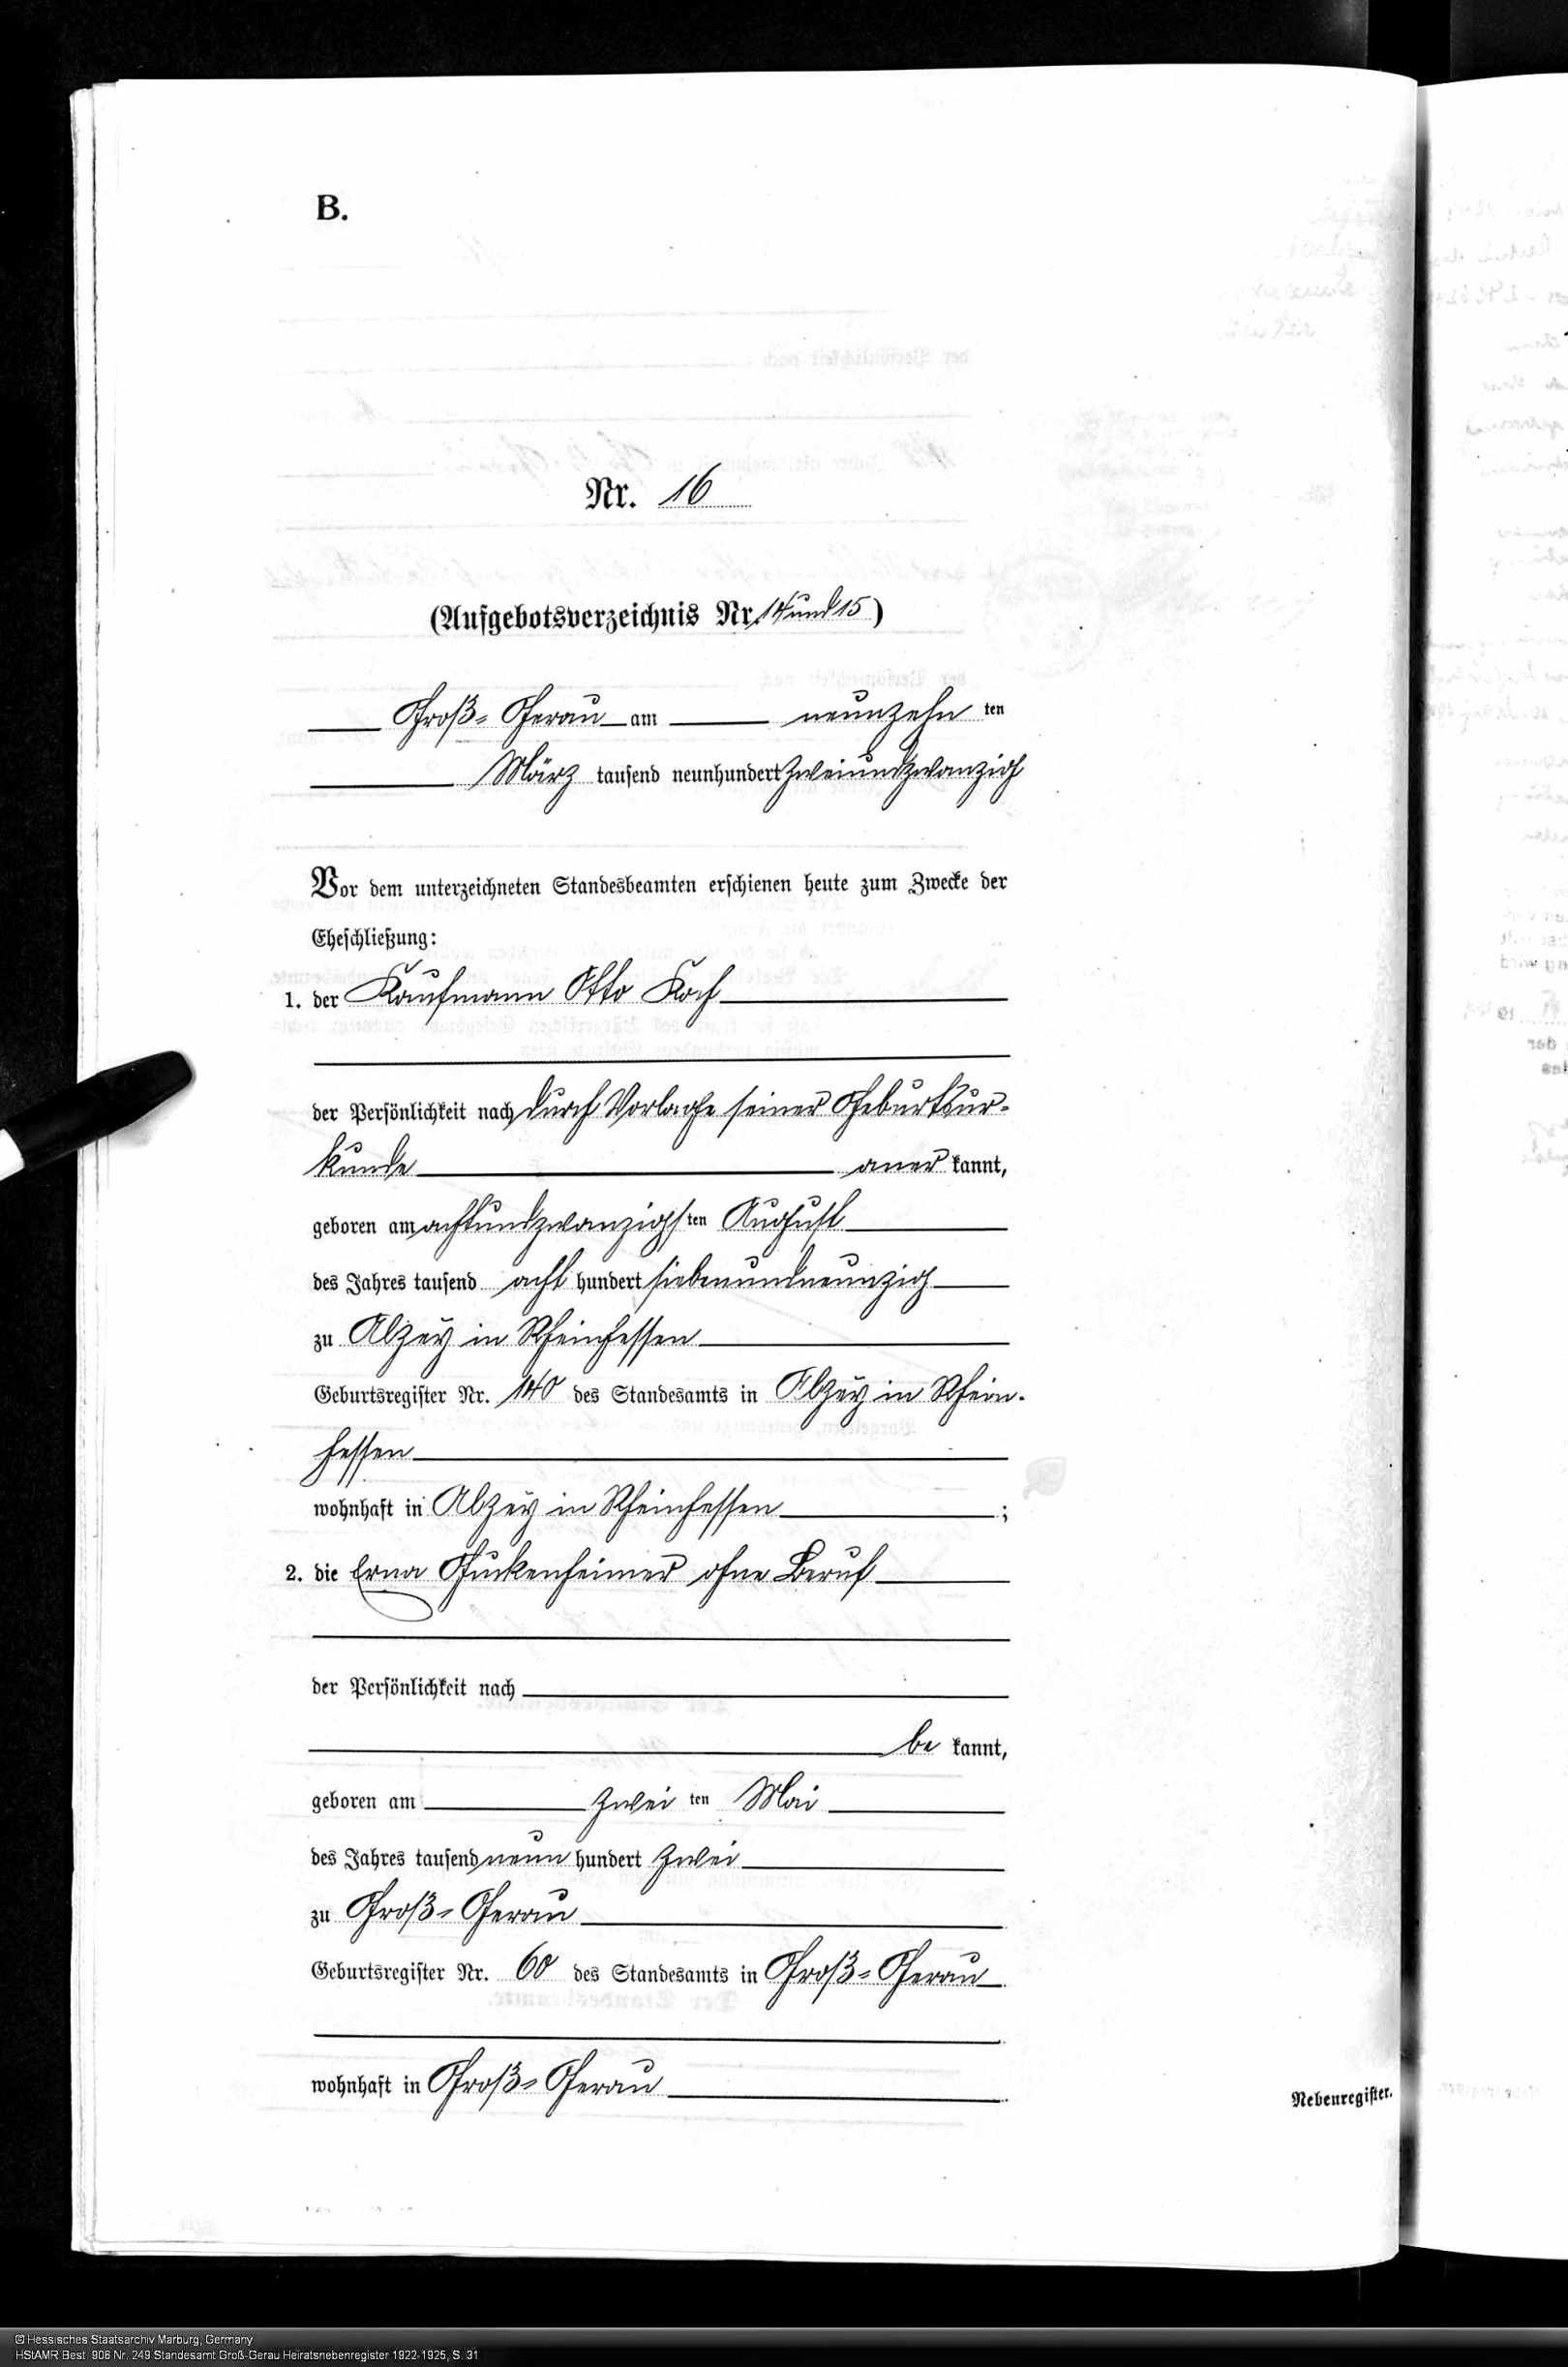 B.
Nr. 16
(Aufgebotsverzeichnis Nr. 14 und 15)
Groß-Gerau am neunzehn ten
März tausend neunhundert zweiundzwanzig
Vor dem unterzeichneten Standesbeamten erschienen heute zum Zwecke der
Eheschließung:
1. der Kaufmann Otto Koch
der Persönlichkeit nach durch Vorlage seiner Geburtsur-
kunde aner kannt,
geboren am achtundzwanzigsten August
des Jahres tausend acht hundert siebenundneunzig
zu Alzey in Rheinhessen
Geburtsregister Nr. 140 des Standesamts in Alzey in Rhein-
hessen
wohnhaft in Alzey in Rheinhessen ;
2. die Erna Guckenheimer ohne Beruf
der Persönlichkeit nach
be kannt,
geboren am zwei ten Mai
des Jahres tausend neun hundert zwei
zu Groß-Gerau
Geburtsregister Nr. 60 des Standesamts in Groß-Gerau
wohnhaft in Groß-Gerau
Nebenregister.
© Hessisches Staatsarchiv Marburg, Germany
HStAMR Best. 906 Nr. 249 Standesamt Groß-Gerau Heiratsnebenregister 1922-1925, S. 31